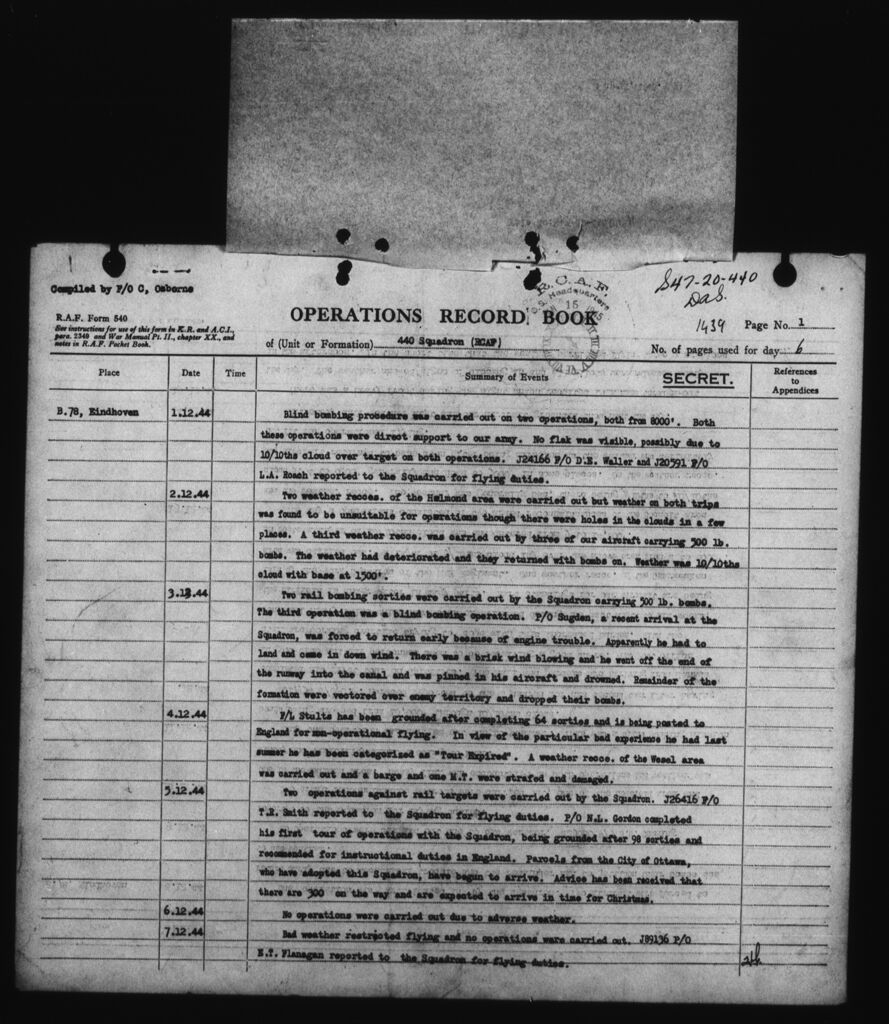 S47-20-440
DaS.
Compiled by F/O C, Osborne
R.C.A.F.
O.S. Headquarters
15
R.A.F. Form 540
OPERATIONS RECORD BOOK
1439
Page No. 1
See instructions for use of this form in K.R. and A.C.I.,
para. 2349 and War Manual Pt. II., chapter XX., and
notes in R.A.F. Pocket Book.
of (Unit or Formation) 440 Squadron (RCAF)
No. of pages used for day 6
Place Date Time Summary of Events SECRET. References to Appendices
B.78, Eindhoven 1.12.44 Blind bombing procedure was carried out on two operations, both from 8000'. Both
these operations were direct support to our army. No flak was visible, possibly due to
10/10ths cloud over target on both operations. J24166 F/O D.E. Waller and J20591 F/O
L.A. Roach reported to the Squadron for flying duties.
2.12.44 Two weather recces. of the Helmond area were carried out but weather on both trips
was found to be unsuitable for operations though there were holes in the clouds in a few
places. A third weather recce. was carried out by three of our aircraft carrying 500 lb.
bombs. The weather had deteriorated and they returned with bombs on. Weather was 10/10ths
cloud with base at 1500'.
3.12.44 Two rail bombing sorties were carried out by the Squadron carrying 500 lb. bombs.
The third operation was a blind bombing operation. P/O Sugden, a recent arrival at the
Squadron, was forced to return early because of engine trouble. Apparently he had to
land and came in down wind. There was a brisk wind blowing and he went off the end of
the runway into the canal and was pinned in his aircraft and drowned. Remainder of the
formation were vectored over enemy territory and dropped their bombs.
4.12.44 F/L Stults has been grounded after completing 64 sorties and is being posted to
England for non-operational flying. In view of the particular bad experience he had last
summer he has been categorized as "Tour Expired". A weather recce. of the Wesel area
was carried out and a barge and one M.T. were strafed and damaged.
5.12.44 Two operations against rail targets were carried out by the Squadron. J26416 F/O
T.E. Smith reported to the Squadron for flying duties. P/O N.L. Gordon completed
his first tour of operations with the Squadron, being grounded after 98 sorties and
recommended for instructional duties in England. Parcels from the City of Ottawa,
who have adopted this Squadron, have begun to arrive. Advice has been received that
there are 300 on the way and are expected to arrive in time for Christmas.
6.12.44 No operations were carried out due to adverse weather.
7.12.44 Bad weather restricted flying and no operations were carried out. J89136 P/O
E.T. Flanagan reported to the Squadron for flying duties.